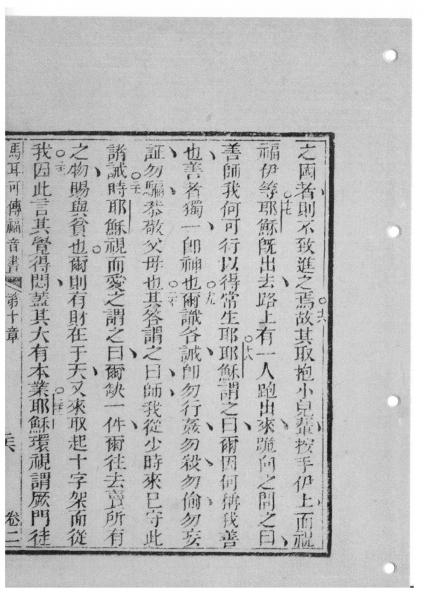 之國者則不致進之焉故其取抱小兒輩按手伊上而祝
○十六
福伊等耶穌旣出去路上有一人跑出來跪向之問之曰
○十七
善師我何可行以得常生耶耶穌謂之曰爾因何稱我善
○十八
也善者獨一卽神也爾識各誡卽勿行姦勿殺勿偷勿妄
○十九
証勿騙恭敬父母也其答謂之曰師我從少時來已守此
○二十
諸誡時耶穌視而愛之謂之曰爾缺一件爾往去賣所有
之物賜與貧也爾則有財在于天又來取起十字架而從
○二一
我因此言其覺得悶蓋其大有本業耶穌環視謂厥門徒
馬耳可傳福音書 第十章 卷二